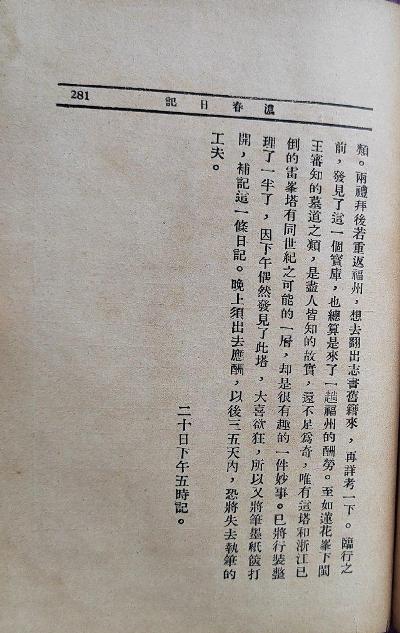 281
濃春日記
類。兩禮拜後若重返福州，想去翻出志書舊籍來，再詳考一下。臨行之
前，發見了這一個寶庫，也總算是來了一趟福州的酬勞。至如蓮花峯下閩
王審知的墓道之類，是盡人皆知的故實，還不足爲奇，唯有這塔和浙江已
倒的雷峯塔有同世紀之可能的一層，却是很有趣的一件妙事。已將行裝整
理了一半了，因下午偶然發見了此塔，大喜欲狂，所以又將筆墨紙篋打
開，補記這一條日記。晚上須出去應酬，以後三五天內，恐將失去執筆的
工夫。
二十日下午五時記。